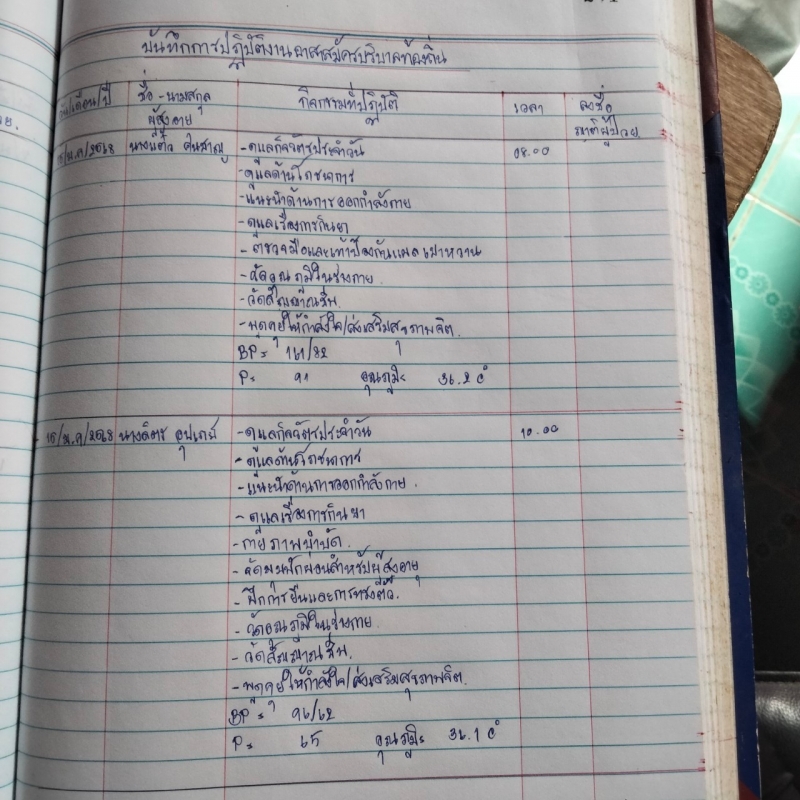 บันทึกการปฏิบัติงานอาสาสมัครบริบาลท้องถิ่น
วัน/เดือน/ปี ชื่อ-นามสกุล ผู้สูงอายุ กิจกรรมที่ปฏิบัติ เวลา ลงชื่อ ญาติผู้ป่วย
/ม.ค/2568 นางแต๋ว - ดูแลกิจวัตรประจำวัน 08.00
- ดูแลด้านโภชนาการ
- แนะนำด้านการออกกำลังกาย
- ดูแลเรื่องการกินยา
- ตรวจมือและเท้าป้องกันแผลเบาหวาน
- วัดอุณภูมิในร่างกาย
- วัดสัญญาณชีพ
- พูดคุยให้กำลังใจ/ส่งเสริมสุขภาพจิต.
BP = 161/82
P = 91 อุณภูมิ = 36.2 c°
16/ม.ค/2568 - ดูแลกิจวัตรประจำวัน 10.00
- ดูแลด้านโภชนาการ
- แนะนำด้านการออกกำลังกาย.
- ดูแลเรื่องการกินยา
- กายภาพบำบัด.
- จัดมุมพักผ่อนสำหรับผู้สูงอายุ
- ฝึกการยืนและการทรงตัว.
- วัดอุณภูมิในร่างกาย.
- วัดสัญญาณชีพ.
- พูดคุยให้กำลังใจ/ส่งเสริมสุขภาพจิต.
BP = 96/62
P = 65 อุณภูมิ = 36.1 c°